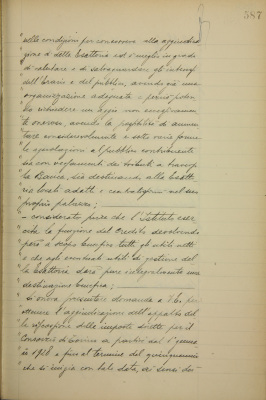 587
" nelle condizioni per concorrere alla aggiudica
" zione di delle Esattorie ed è meglio in grado
" di valutare e di salvaguardare gli interessi
" dell'Erario e del pubblico, avendo già una
" organizzazione adeguata e perciò poten
" do richiedere un aggio non eccessivamen
" te oneroso, avendo la possibilità di aumen
" tare considerevolmente e sotto varie forme
" le agevolazioni al pubblico contribuente
" sia con versamenti dei
" la Banca, sia destinando alla Esatt
" ria locali adatti e centralissimi nel suo
" proprio palazzo;
" — considerato pure che l'Istituto eser
" cita la funzione del Credito devolvendo
" però a scopo benefico tutti gli utili netti
" e che agli eventuali utili di gestione del
" la Esattoria sarà pure integralmente una
" destinazione benefica;
" si onora presentare domanda a V.E. per
" ottenere l'aggiudicazione dell'appalto del
" la riscossione delle imposte dirette per il
" Consorzio di Torino a partire dal 1° genna
" io 1918 e fino al termine del quinquennio
" che si inizia con tale data, ai sensi del